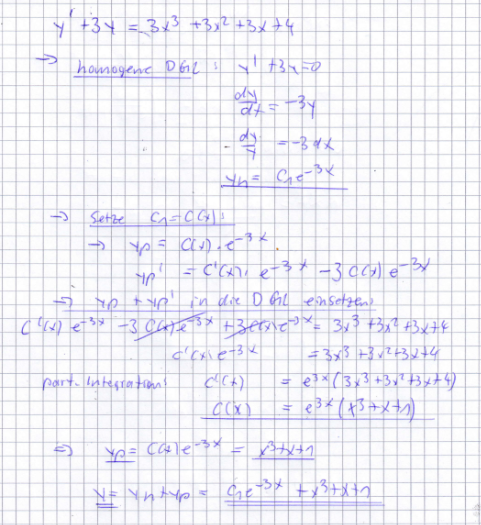 y' + 3y = 3x³ + 3x² + 3x + 4
→ homogene DGL: y' + 3y = 0
dy/dx = -3y
dy/y = -3dx
yₕ = C₁e⁻³ˣ
→ Setze C₁ = C(x):
→ yp = C(x)·e⁻³ˣ
yp' = C'(x)·e⁻³ˣ - 3C(x)e⁻³ˣ
→ yp + yp' in die DGL einsetzen:
C'(x)e⁻³ˣ - 3C(x)e⁻³ˣ + 3C(x)e⁻³ˣ = 3x³ + 3x² + 3x + 4
C'(x)e⁻³ˣ = 3x³ + 3x² + 3x + 4
part. Integration: C'(x) = e³ˣ(3x³ + 3x² + 3x + 4)
C(x) = e³ˣ(x³ + x + 1)
⇒ yp = C(x)e⁻³ˣ = x³ + x + 1
y = yₕ + yp = C₁e⁻³ˣ + x³ + x + 1